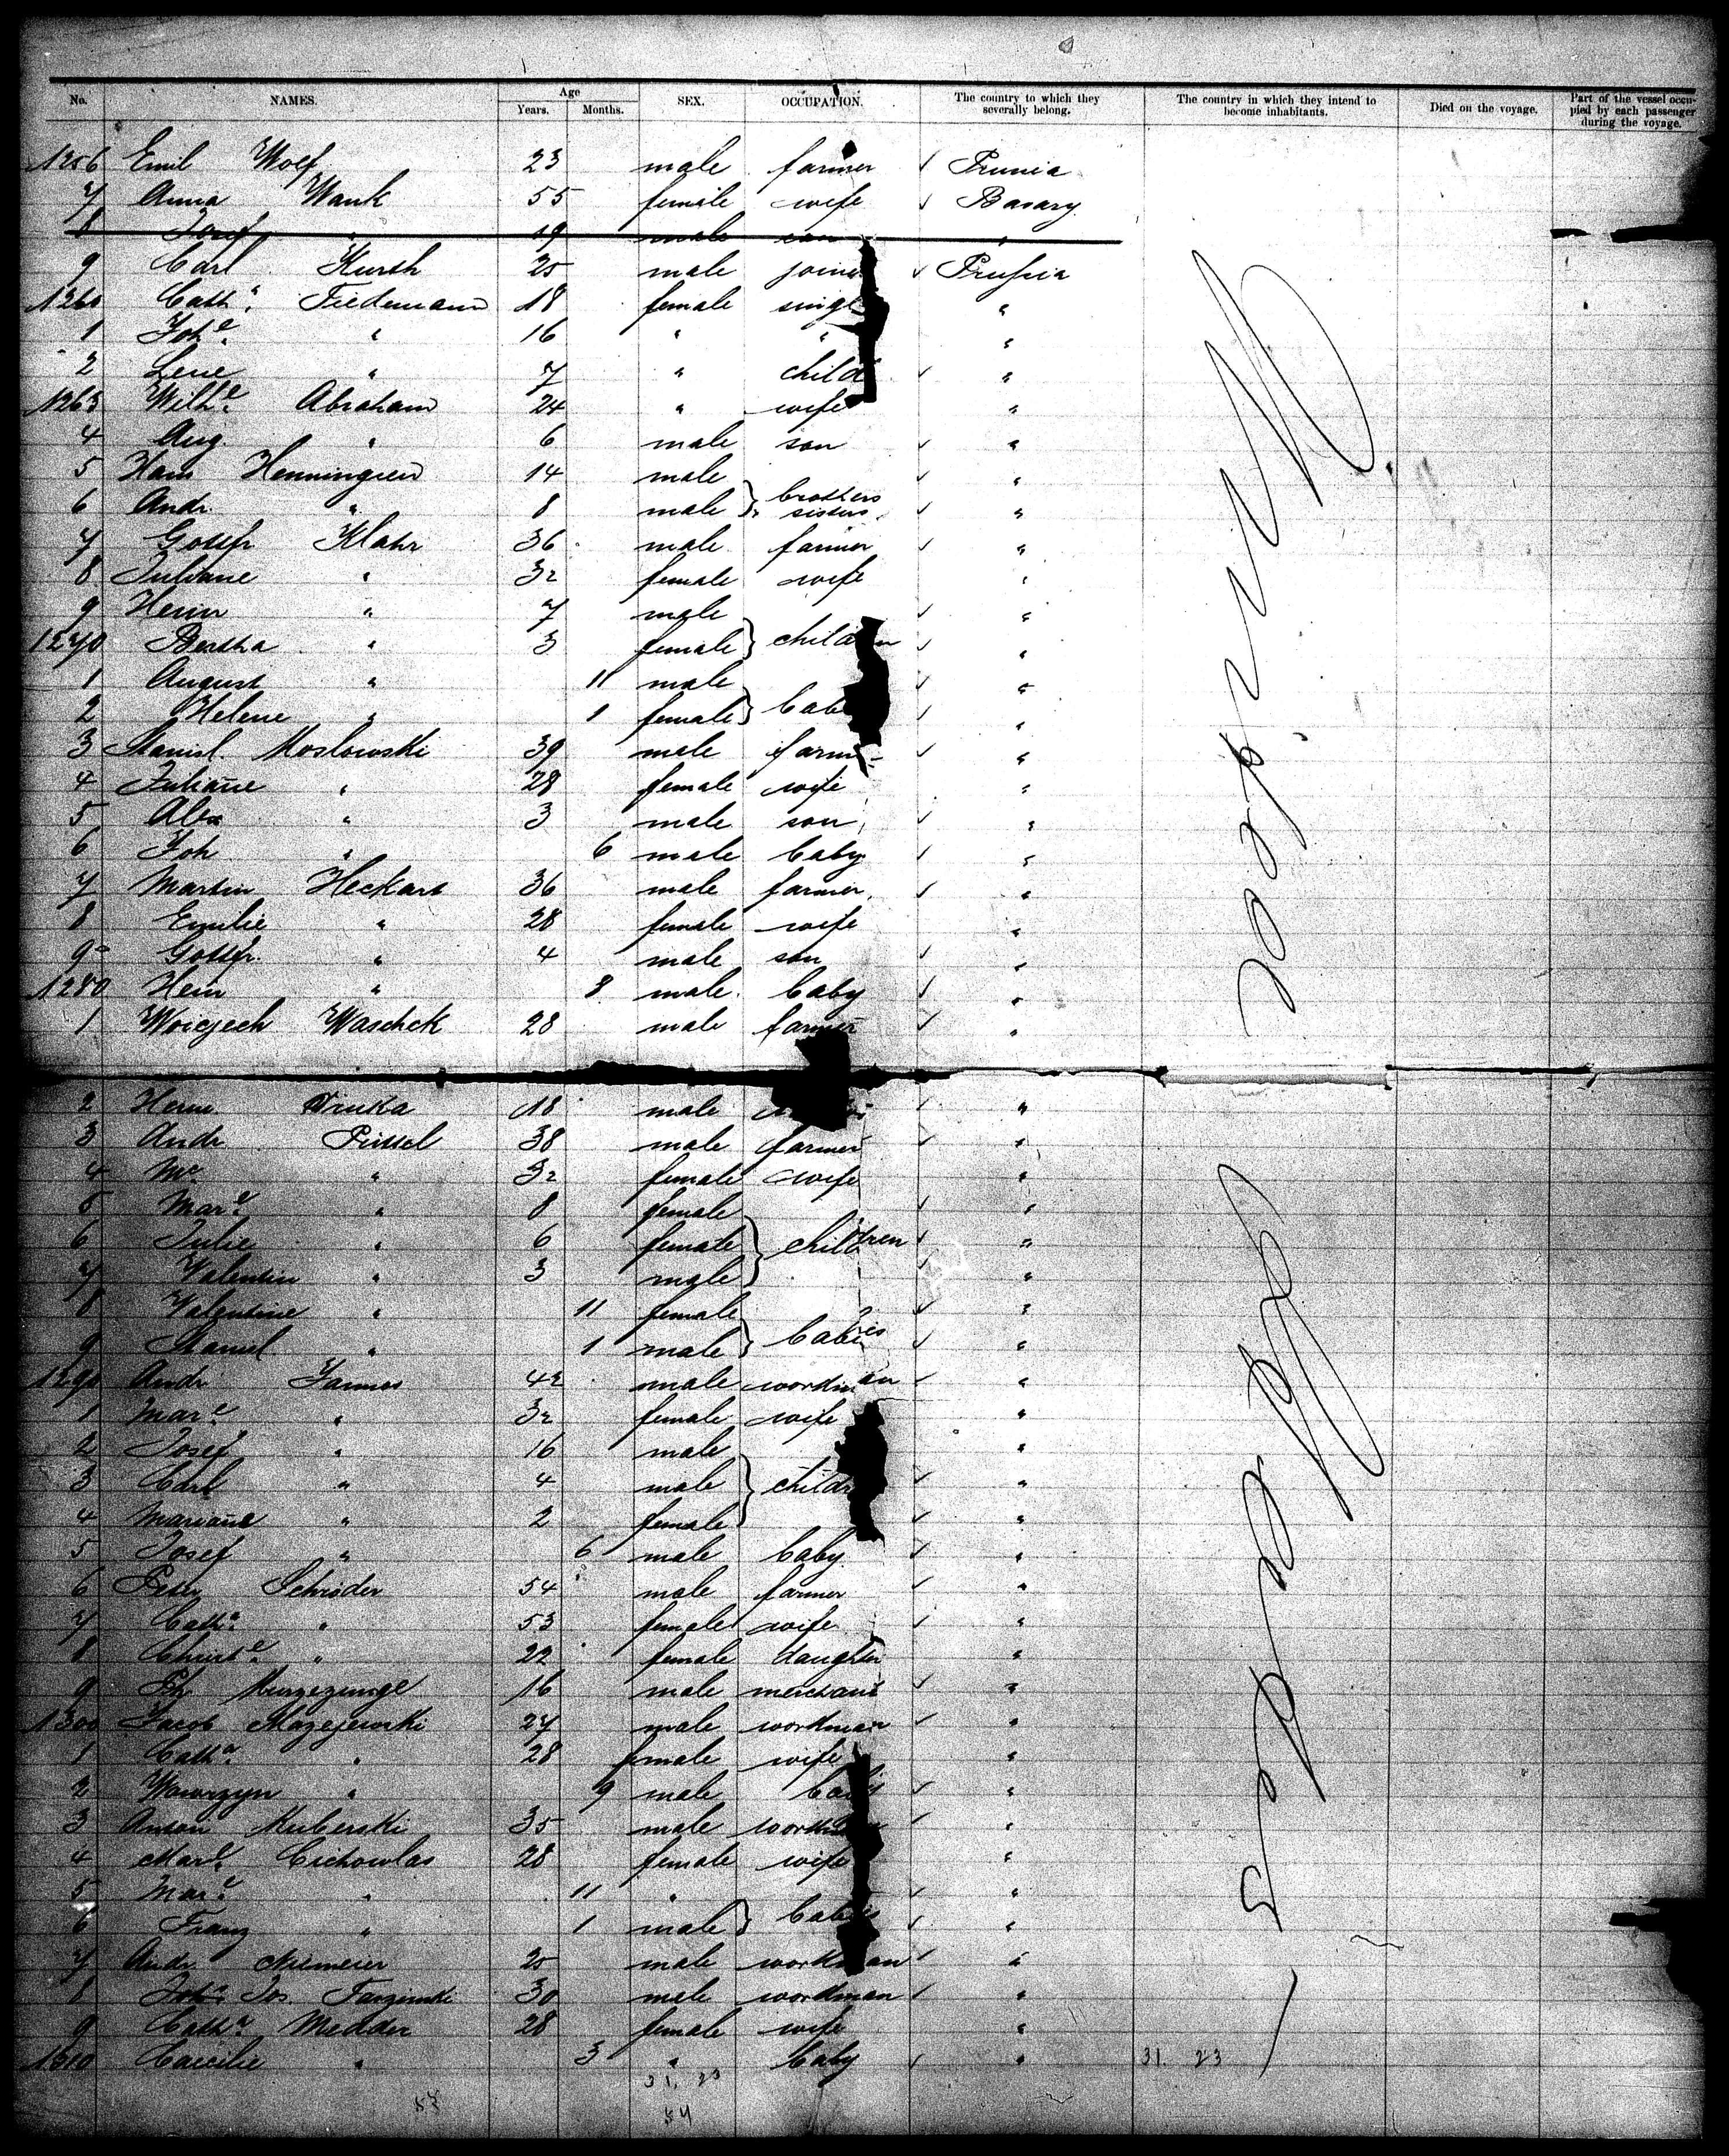 No. NAMES. Age Years. Months. SEX. OCCUPATION. The country to which they severally belong. The country in which they intend to become inhabitants. Died on the voyage. Part of the vessel occupied by each passenger during the voyage.
1256 Emil Wolf 23 male farmer ✓ Prussia
7 Anna Wank 55 female wife ✓ Bavary
8 Josef " 19 male son "
9 Carl Kursh 25 male joiner ✓ Prussia
1260 Cath.a Friedemann 18 female single "
1 Joh.e " 16 " " "
2 Lene " 7 " child ✓ "
1263 Wilh.e Abraham 24 " wife "
4 Aug. " 6 male son ✓ "
5 Hans Henningsen 14 male ✓ "
6 Andr. " 8 male } brothers sisters ✓ "
7 Gottfr Klatr 36 male farmer ✓ "
8 Juliane " 32 female wife "
9 Herm " 7 male ✓ "
1270 Bertha " 3 female } children ✓ "
1 August " 11 male ✓ "
2 Helene " 1 female } bab ✓ "
3 Stanisl. Koslowski 39 male farmer ✓ "
4 Juliane " 28 female wife "
5 Alex " 3 male son ✓ "
6 Joh " 6 male baby ✓ "
7 Martin Heckart 36 male farmer ✓ "
8 Emilie " 28 female wife "
9 Gottfr. " 4 male son ✓ "
1280 Hein " 8 male baby ✓ "
1 Woicjech Waschek 28 male farmer ✓ "
2 Herm 18 male ✓ "
3 Andr Pissel 38 male farmer ✓ "
4 M.e " 32 female wife "
5 Mar.e " 8 female ✓ "
6 Julie " 6 female } children ✓ "
7 Valentin " 3 male ✓ "
8 Valentine " 11 female ✓ "
9 Stanisl " 1 male } babies ✓ "
1290 Andr Jannes 42 male workman ✓ "
1 Mar.e " 32 female wife "
2 Josef " 16 male "
3 Carl " 4 male } childr ✓ "
4 Mariane " 2 female ✓ "
5 Josef " 6 male baby ✓ "
6 Peter Schröder 54 male farmer ✓ "
7 Cath.a " 53 female wife ✓ "
8 Christ.e " 22 female daughter "
9 16 male merchant ✓ "
1300 Jacob Mazejewski 27 male workman ✓ "
1 Cath.a " 28 female wife "
2 Wawrzyn " 9 male baby ✓ "
3 Anton Kuberski 35 male workman ✓ "
4 Mar.e Cichowlas 28 female wife "
5 Mar.e " 11 " ✓ "
6 Franz " 1 male } babies ✓ "
7 Andr. Niemeier 25 male workman ✓ "
8 Jos. 30 male workman ✓ "
9 Cath.a Medder 28 female wife "
1310 Caecilie " 3 " baby ✓ "
31. 23 31. 23
54